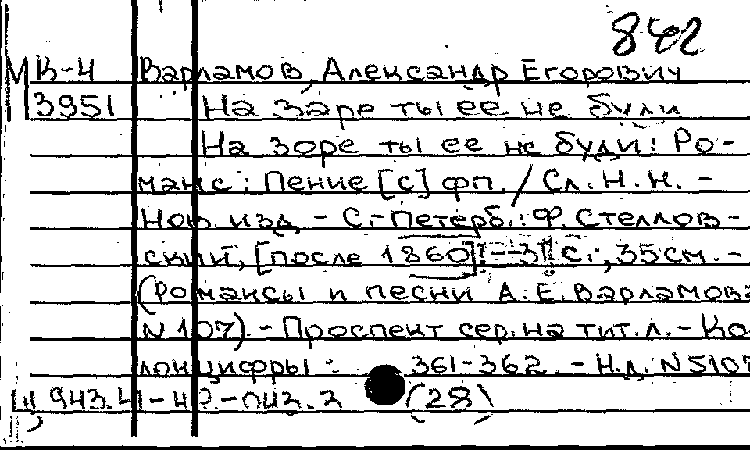 842
М В-4 Варламов, Александр Егорович
3951 На заре ты ее не буди
На заре ты ее не буди: Ро-
манс: Пение [с] фп. / Сл. Н.Н. -
Нов. изд. - С.-Петерб.: Ф. Стеллов-
ский, [после 1860]. - 3 с.; 35 см. -
(Романсы и песни А.Е. Варламова
N 107). - Проспект сер. на тит. л. - Ко-
лонцифры: 361-362. - Н.д. N 5107
(28)